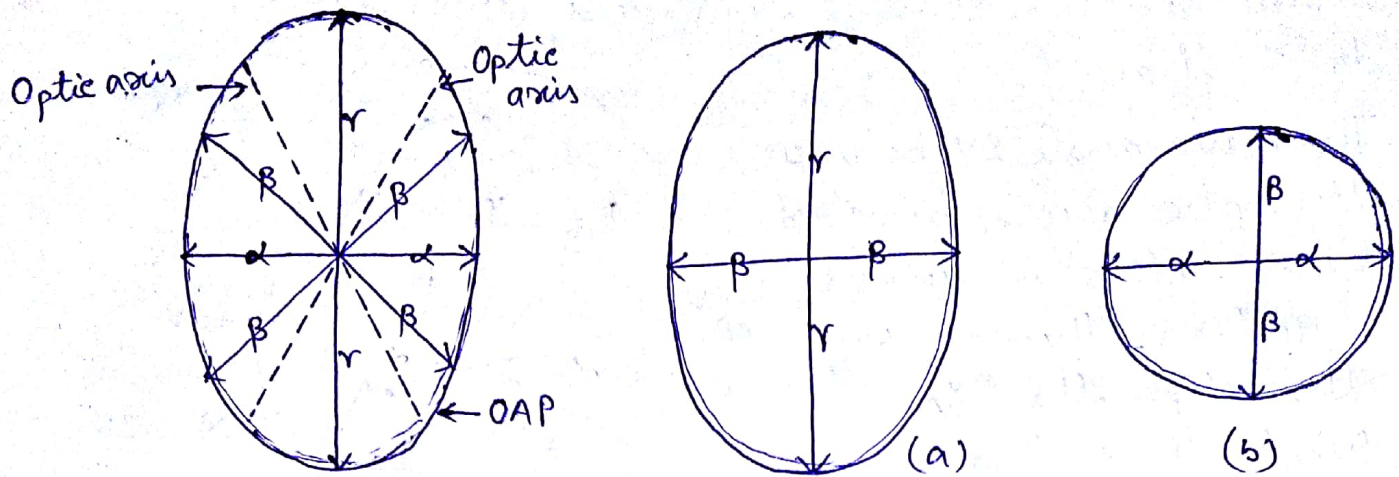 Optic axis
Optic
axis
γ
β
β
α
α
β
β
γ
OAP
γ
β
β
γ
(a)
β
α
α
β
(b)